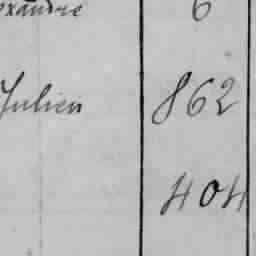 exandre 6
Julien 862
404